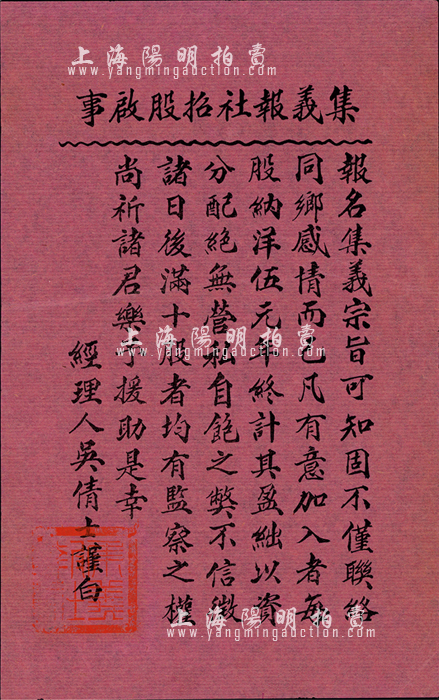 上海陽明拍賣
www.yangmingauction.com
集義報社招股啟事
報名集義宗旨可知固不僅聯絡
同鄉感情而已凡有意加入者每
股納洋伍元年終計其盈絀以資
分配絕無營私自飽之弊不信徵
諸日後滿十股者均有監察之權
尚祈諸君樂予援助是幸
經理人吳倩士謹白
上海陽明拍賣
www.yangmingauction.com
上海陽明拍賣
www.yangmingauction.com